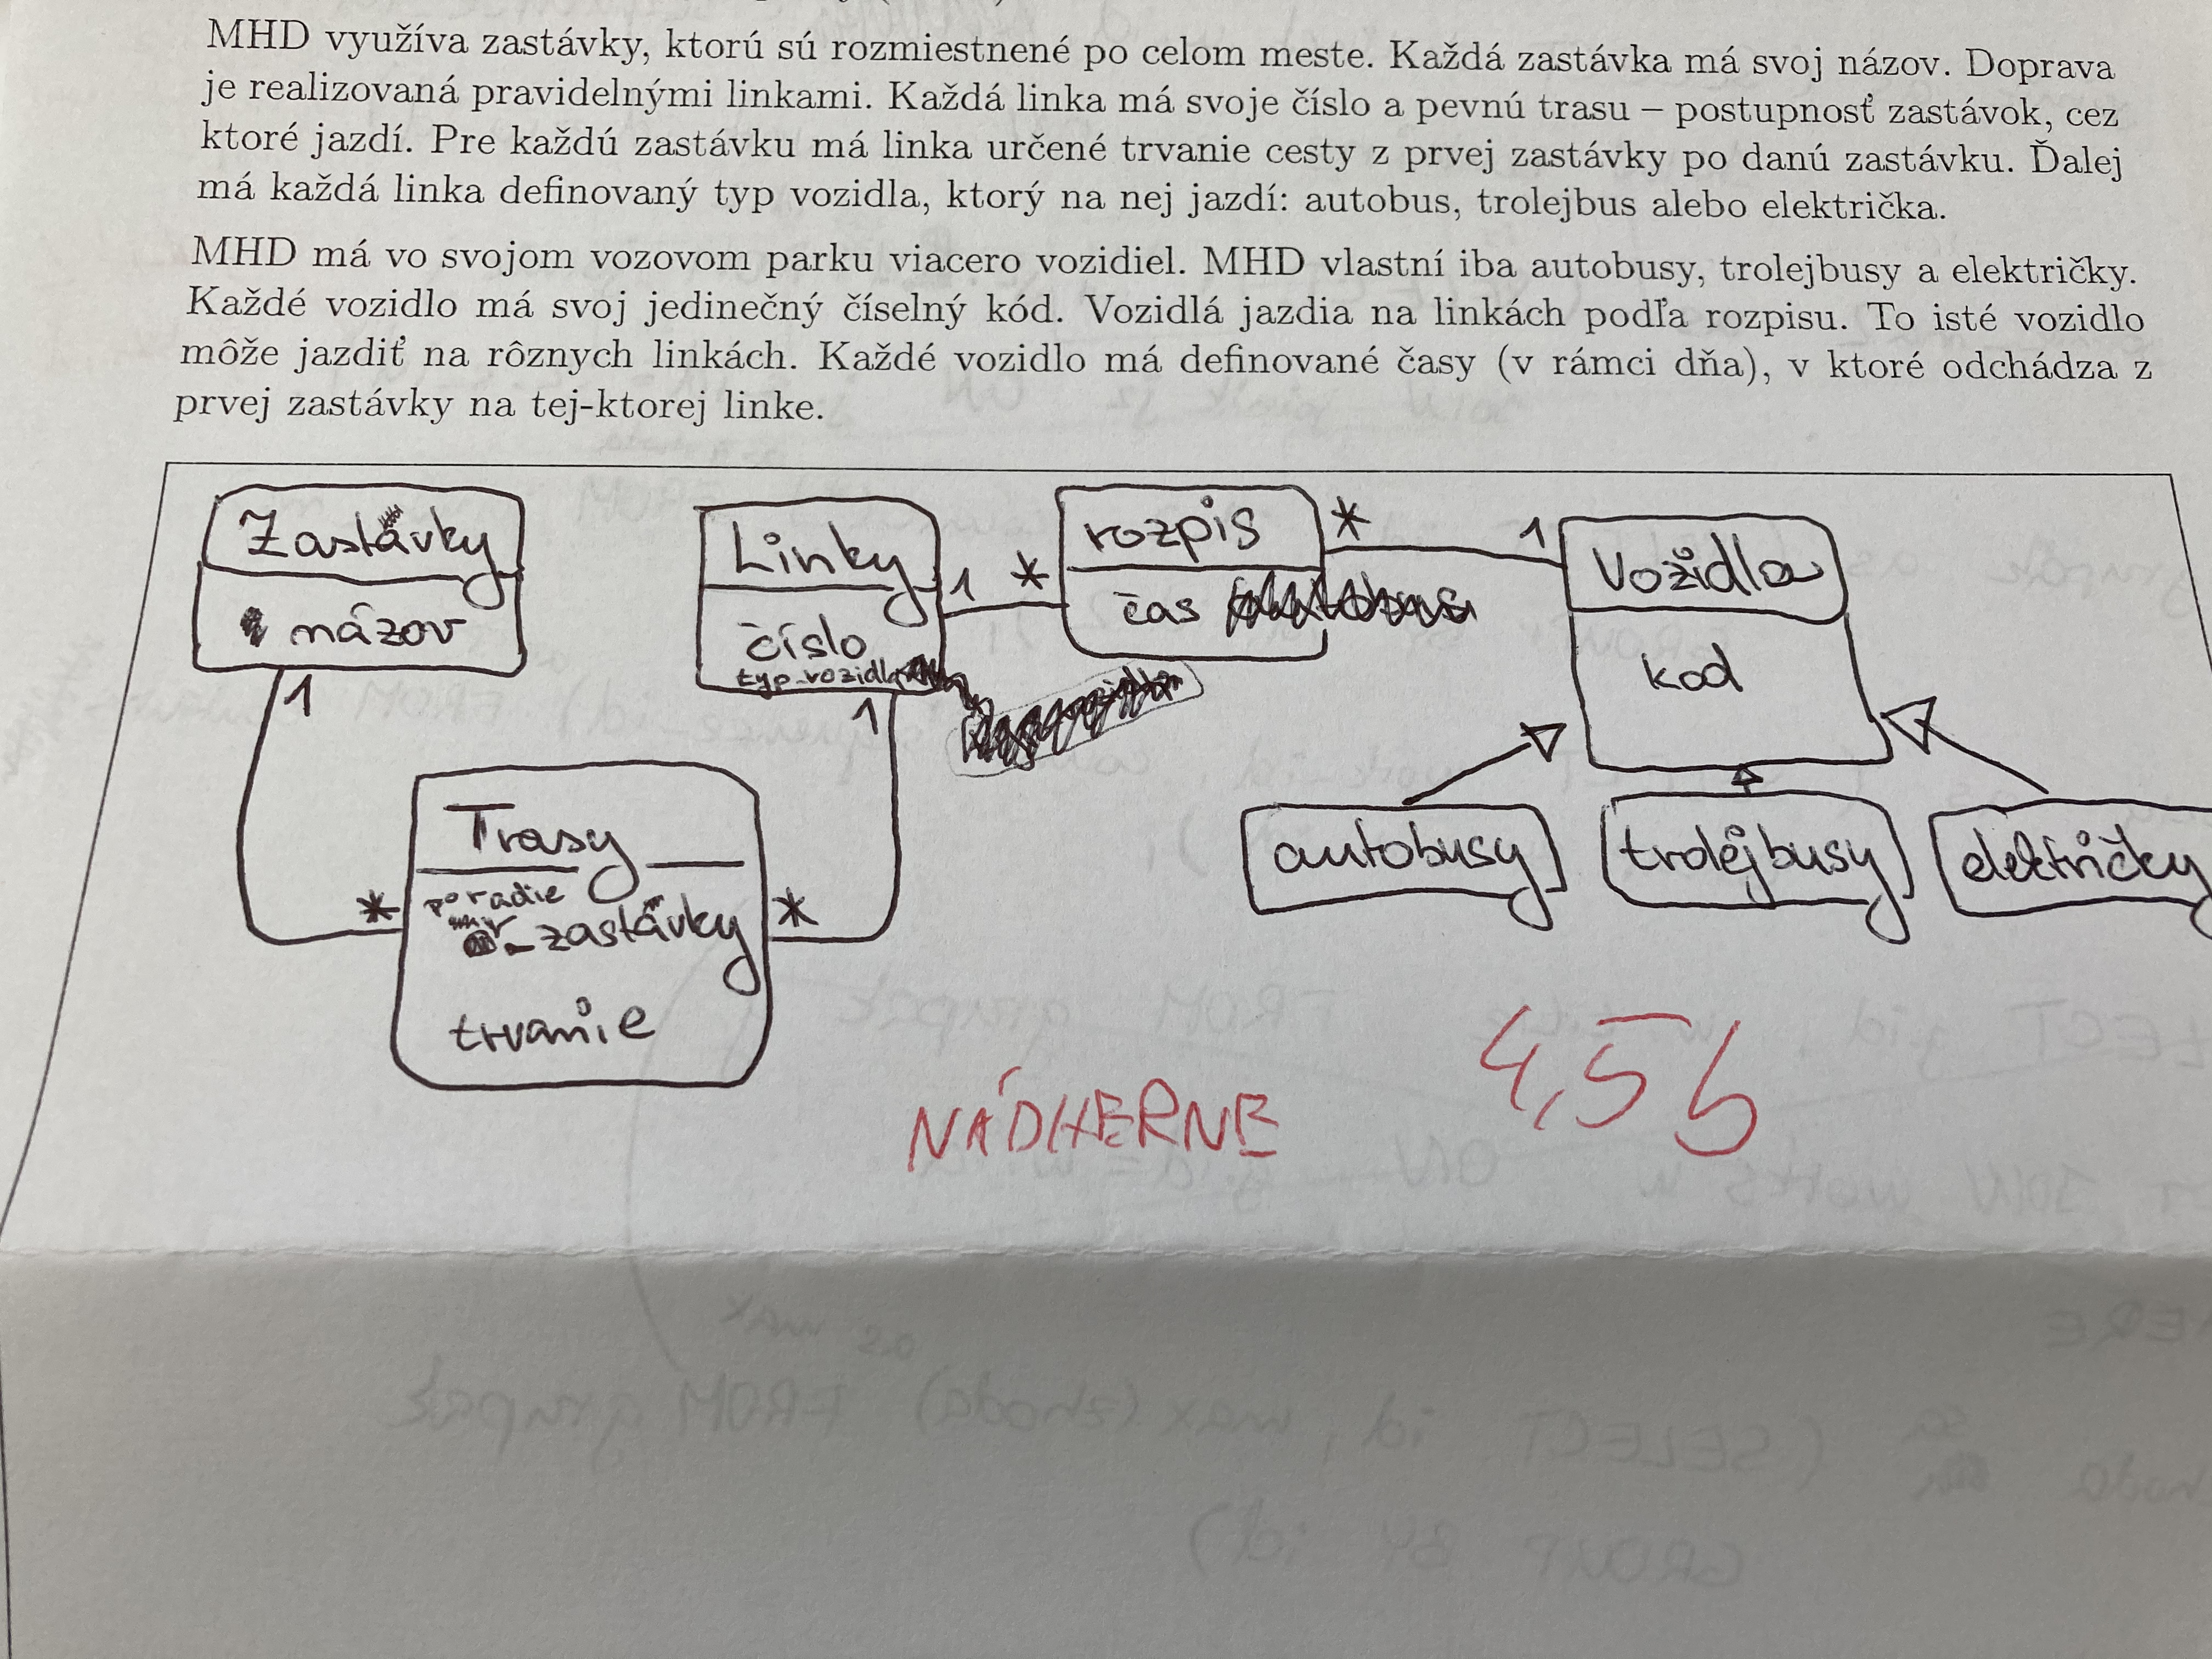 MHD využíva zastávky, ktorú sú rozmiestnené po celom meste. Každá zastávka má svoj názov. Doprava
je realizovaná pravidelnými linkami. Každá linka má svoje číslo a pevnú trasu – postupnosť zastávok, cez
ktoré jazdí. Pre každú zastávku má linka určené trvanie cesty z prvej zastávky po danú zastávku. Ďalej
má každá linka definovaný typ vozidla, ktorý na nej jazdí: autobus, trolejbus alebo električka.
MHD má vo svojom vozovom parku viacero vozidiel. MHD vlastní iba autobusy, trolejbusy a električky.
Každé vozidlo má svoj jedinečný číselný kód. Vozidlá jazdia na linkách podľa rozpisu. To isté vozidlo
môže jazdiť na rôznych linkách. Každé vozidlo má definované časy (v rámci dňa), v ktoré odchádza z
prvej zastávky na tej-ktorej linke.
Zastávky
názov
1
Linky
číslo
typ_vozidla
1
1
*
rozpis
čas
*
1
Vozidla
kod
autobusy
trolejbusy
električky
Trasy
poradie
_zastávky
trvanie
*
*
NÁDHERNE
4,5b